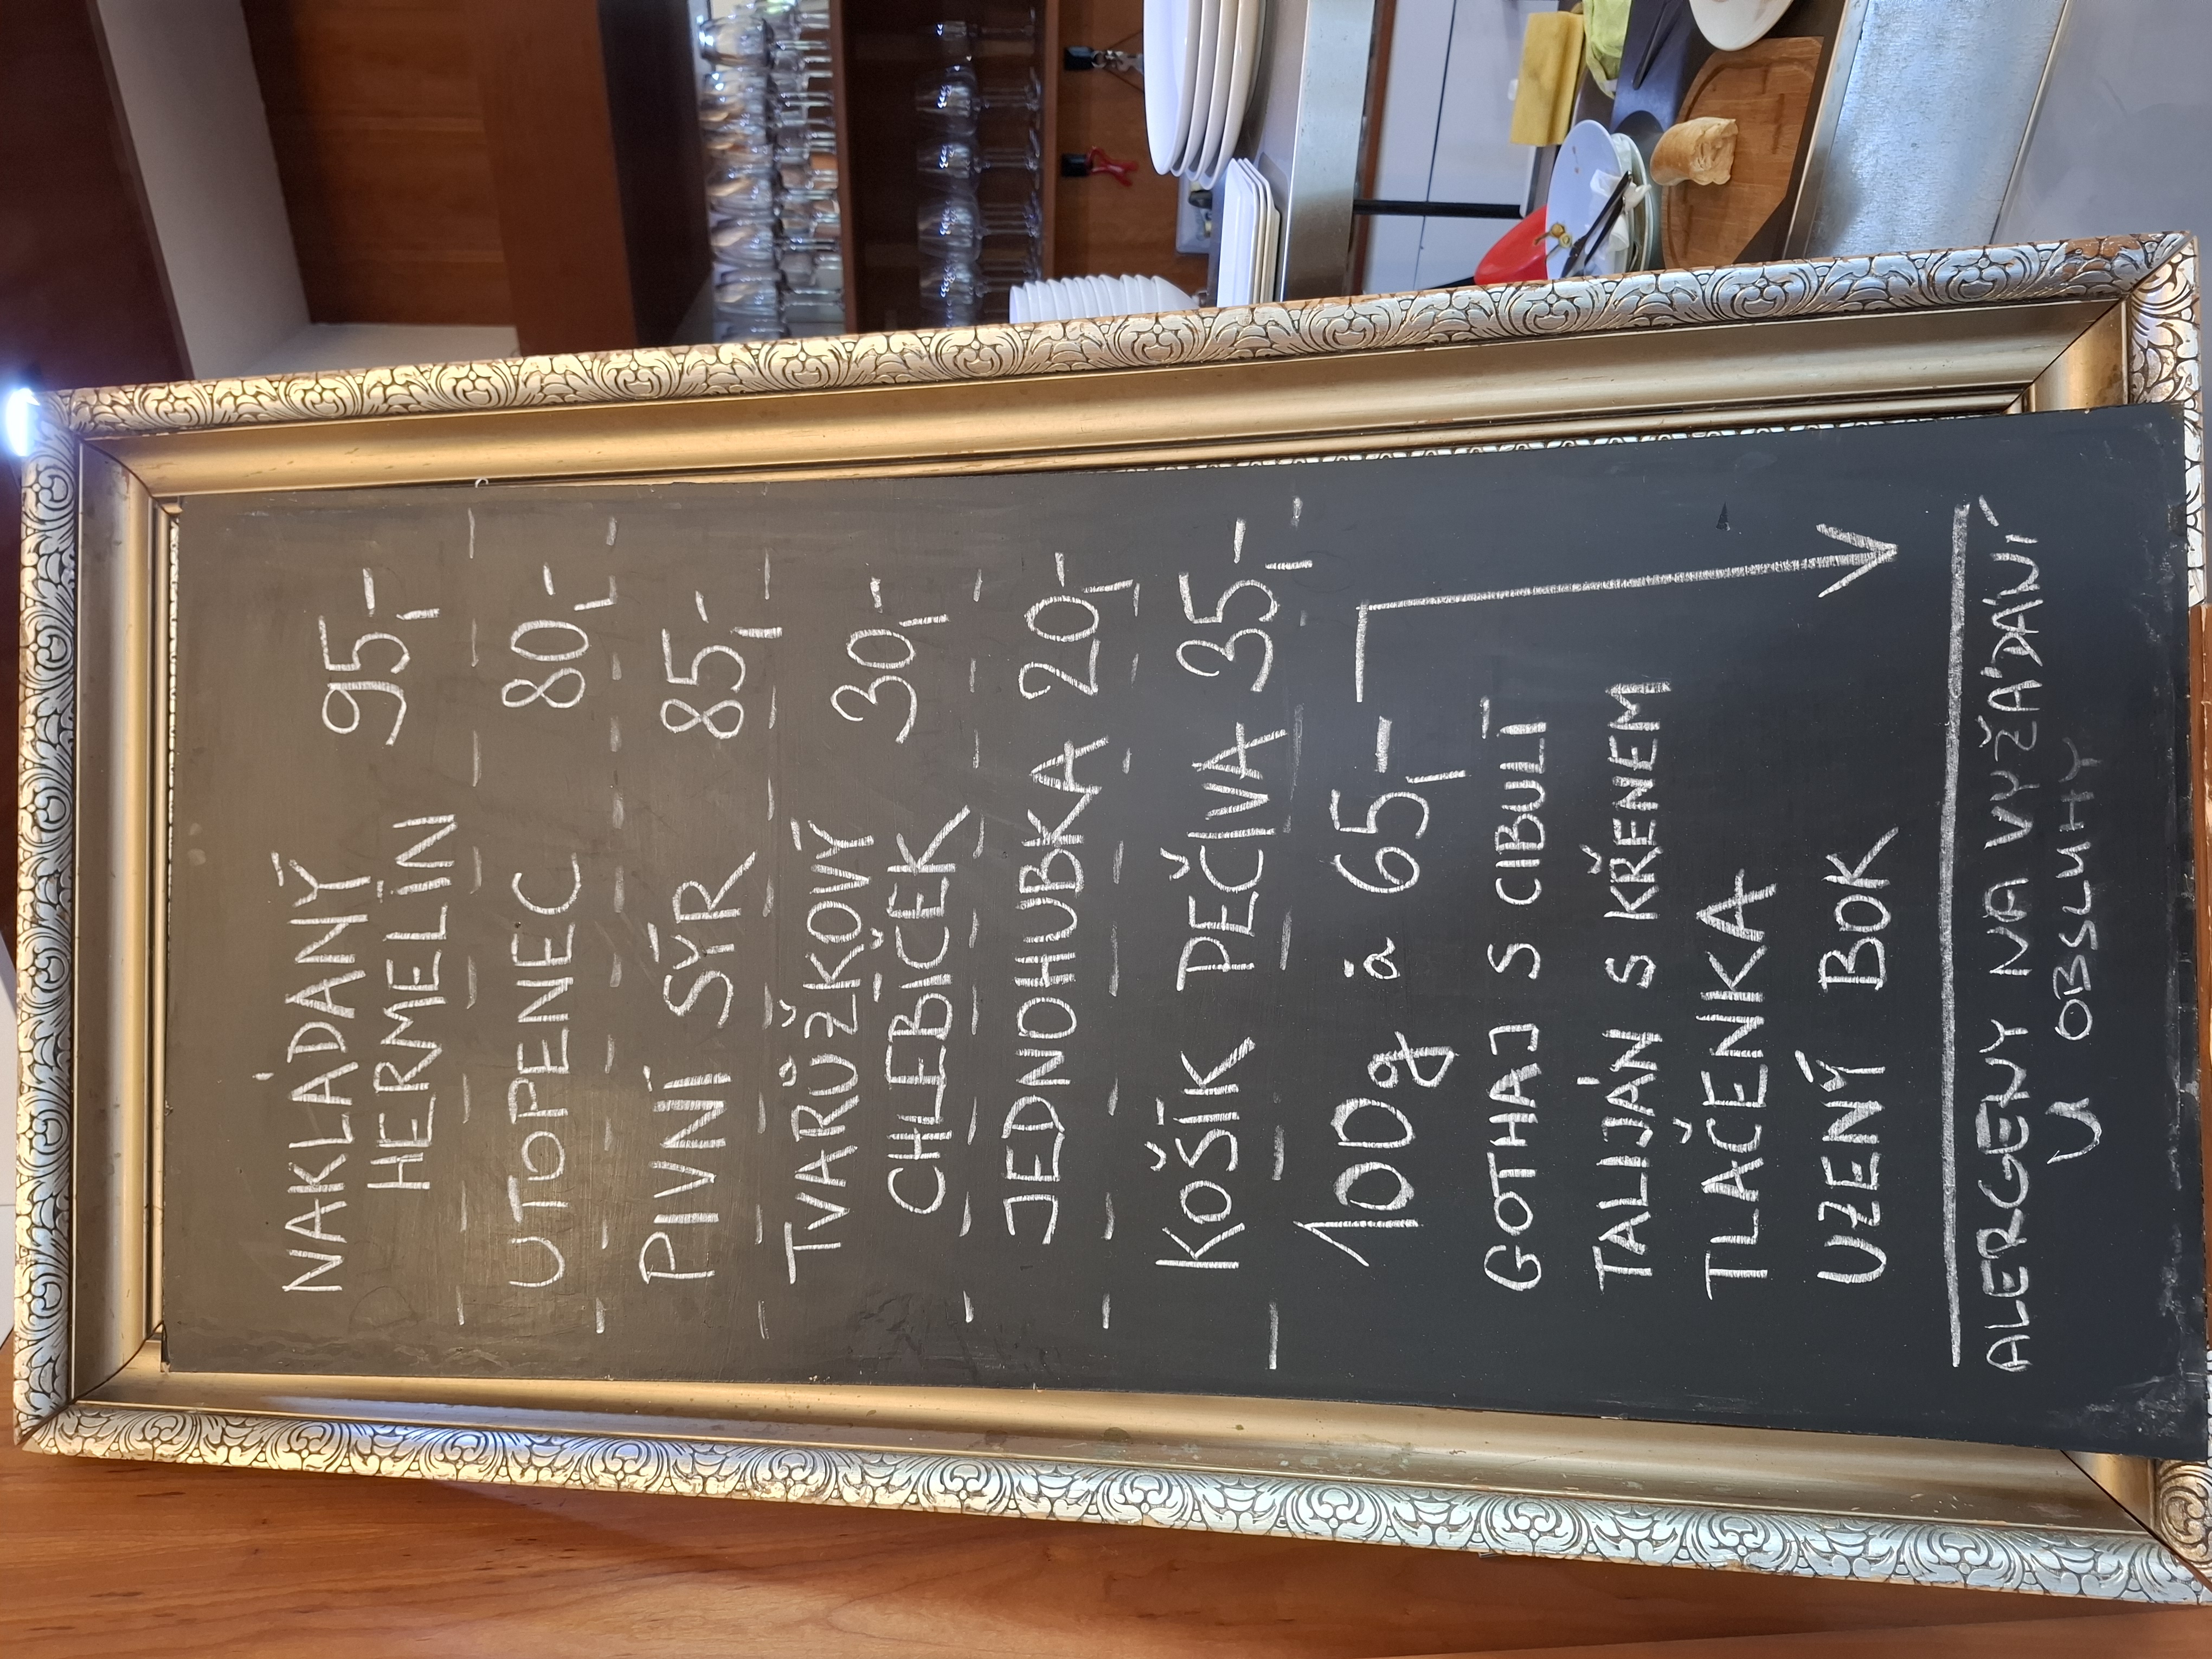 NAKLÁDANÝ
HERMELÍN 95,-
UTOPENEC 80,-
PIVNÍ SÝR 85,-
TVARŮŽKOVÝ
CHLEBÍČEK 30,-
JEDNOHUBKA 20,-
KOŠÍK PEČIVA 35,-
100g à 65,-
GOTHAJ S CIBULÍ
TALIJÁN S KŘENEM
TLAČENKA
UZENÝ BOK
ALERGENY NA VYŽÁDÁNÍ
U OBSLUHY